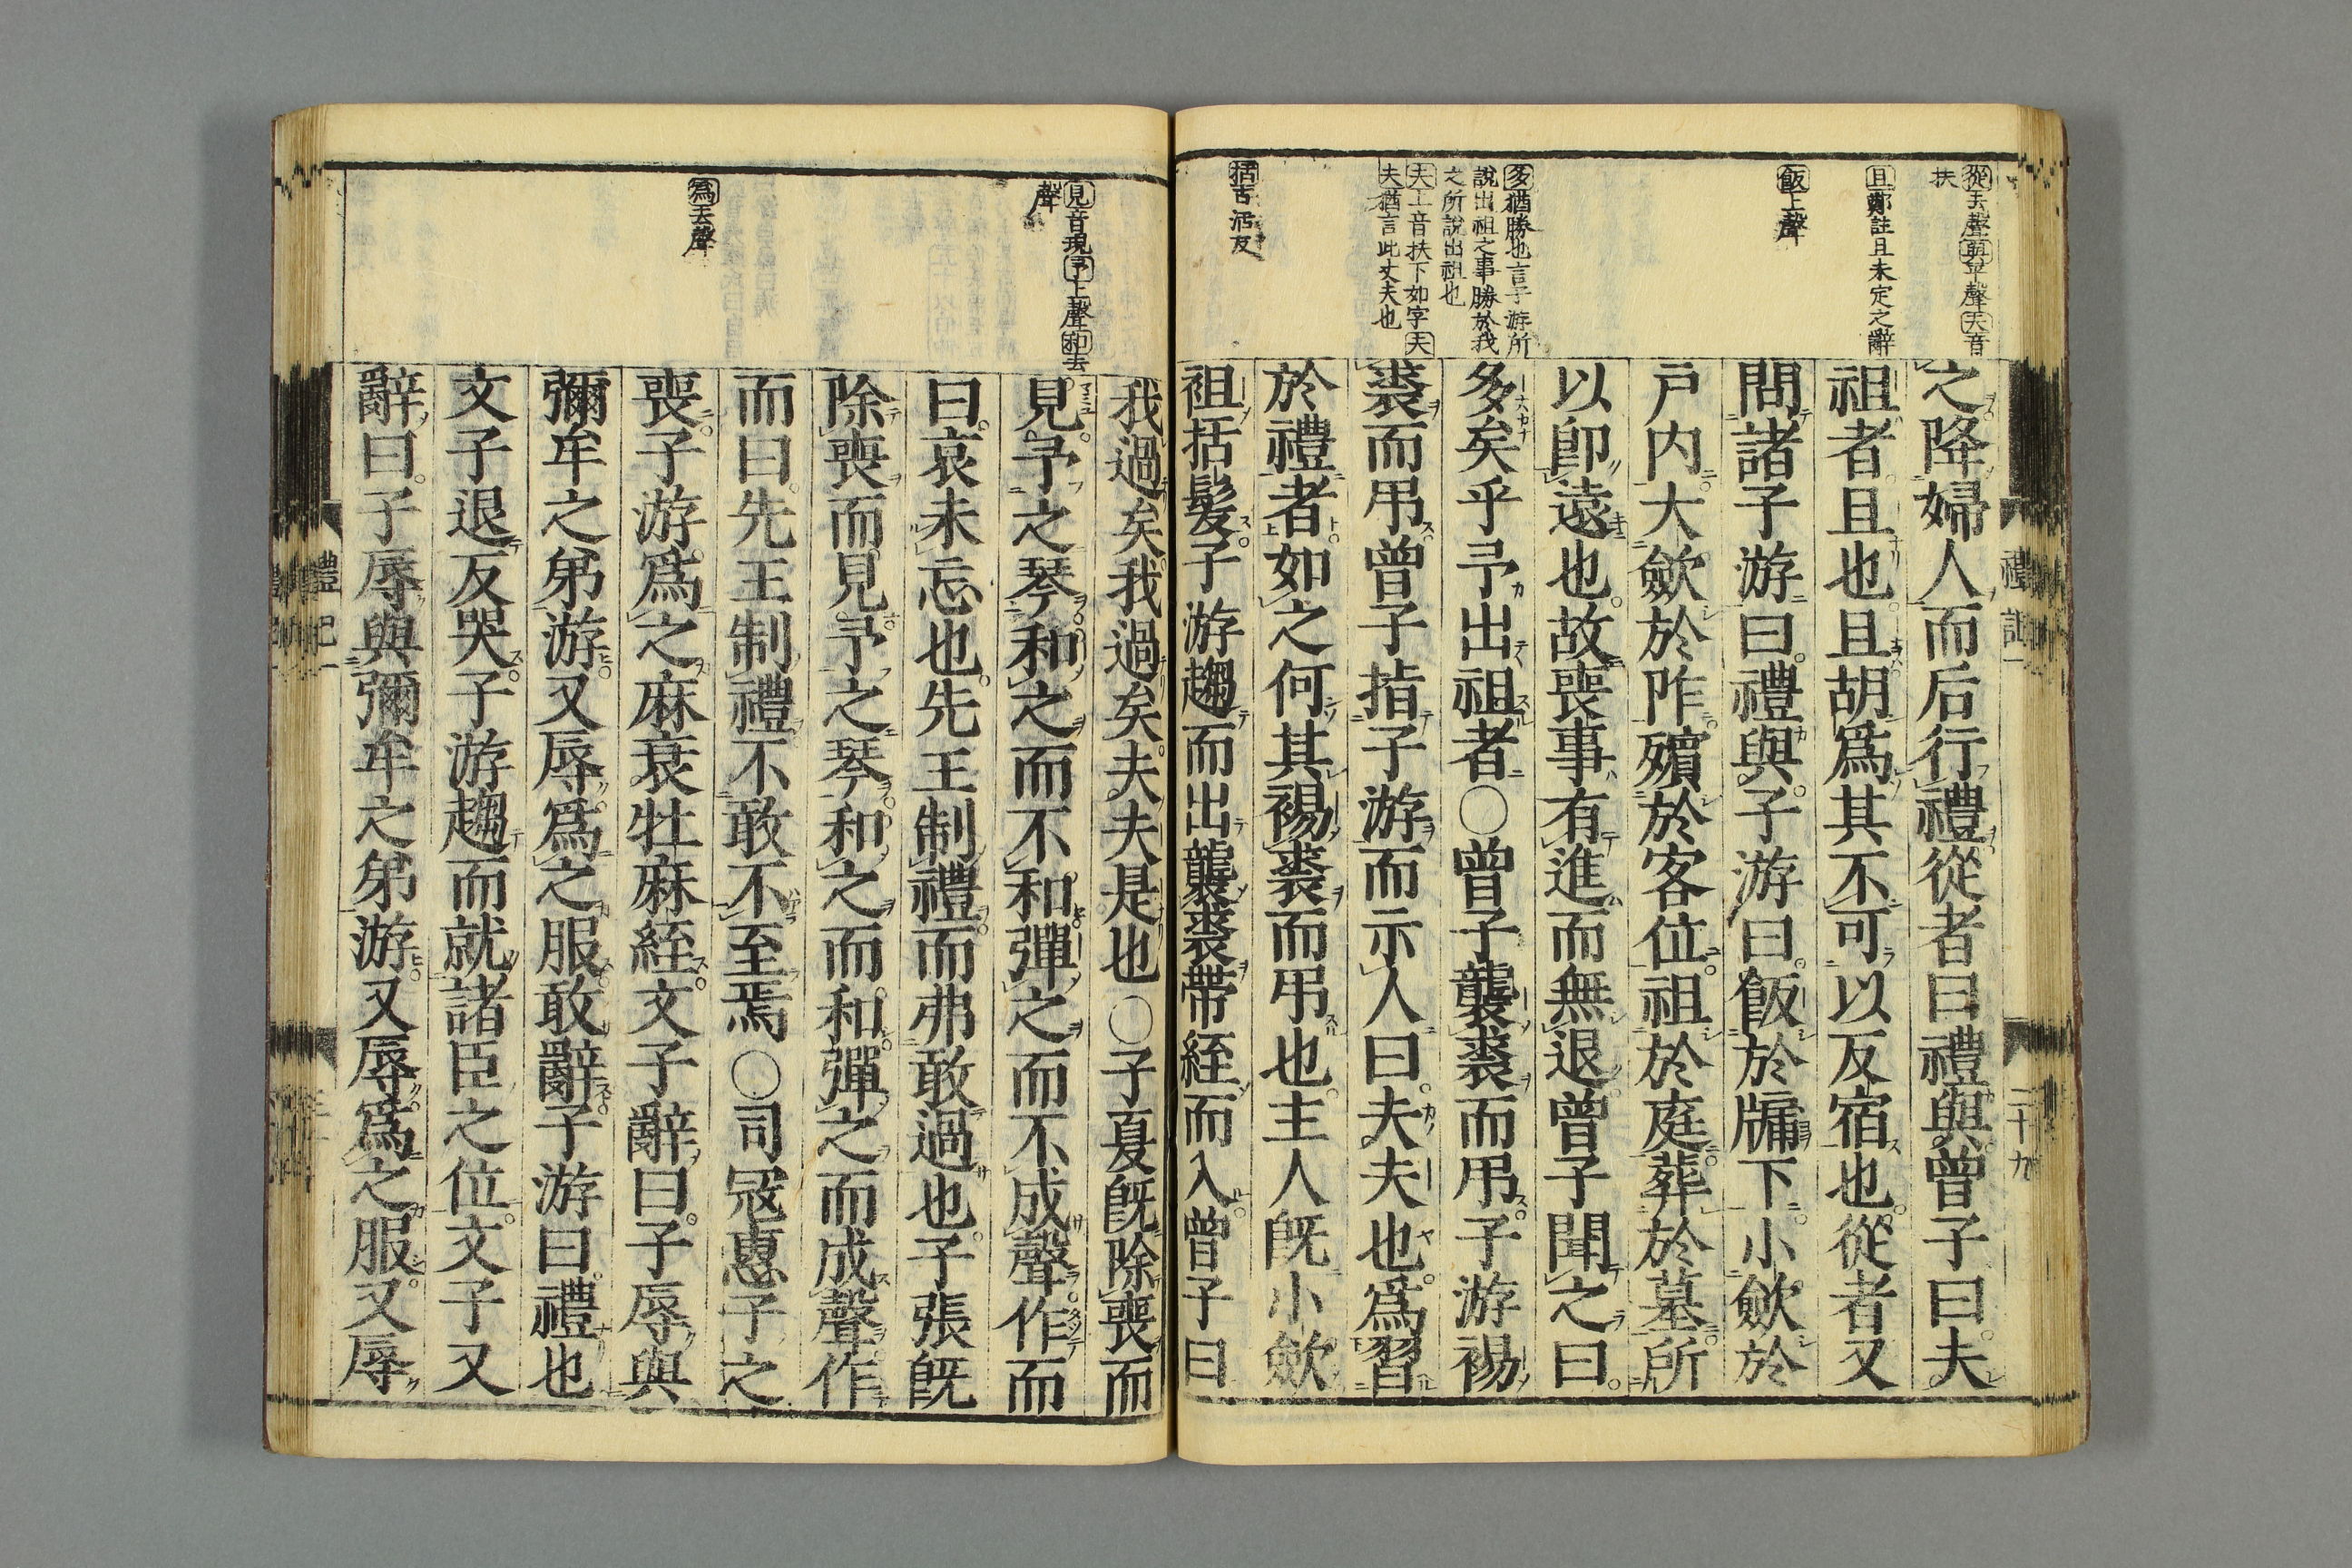 從去聲與平聲夫音
扶
且鄭註且未定之辭
飯上聲
多猶勝也言子游所
說出祖之事勝於我
之所說出祖也
夫上音扶下如字夫
夫猶言此丈夫也
括古活反
之降婦人而后行禮從者曰禮與曾子曰夫
祖者且也且胡爲其不可以反宿也從者又
問諸子游曰禮與子游曰飯於牖下小斂於
戶內大斂於阼殯於客位祖於庭葬於墓所
以卽遠也故喪事有進而無退曾子聞之曰
多矣乎予出祖者○曾子襲裘而弔子游裼
裘而弔曾子指子游而示人曰夫夫也爲習
於禮者如之何其裼裘而弔也主人旣小斂
袒括髮子游趨而出襲裘帶絰而入曾子曰
禮記一
二十九
見音現予上聲和去
聲
爲去聲
我過矣我過矣夫夫是也○子夏旣除喪而
見予之琴和之而不和彈之而不成聲作而
曰哀未忘也先王制禮而弗敢過也子張旣
除喪而見予之琴和之而和彈之而成聲作
而曰先王制禮不敢不至焉○司寇惠子之
喪子游爲之麻衰牡麻絰文子辭曰子辱與
彌牟之弟游又辱爲之服敢辭子游曰禮也
文子退反哭子游趨而就諸臣之位文子又
辭曰子辱與彌牟之弟游又辱爲之服又辱
禮記一